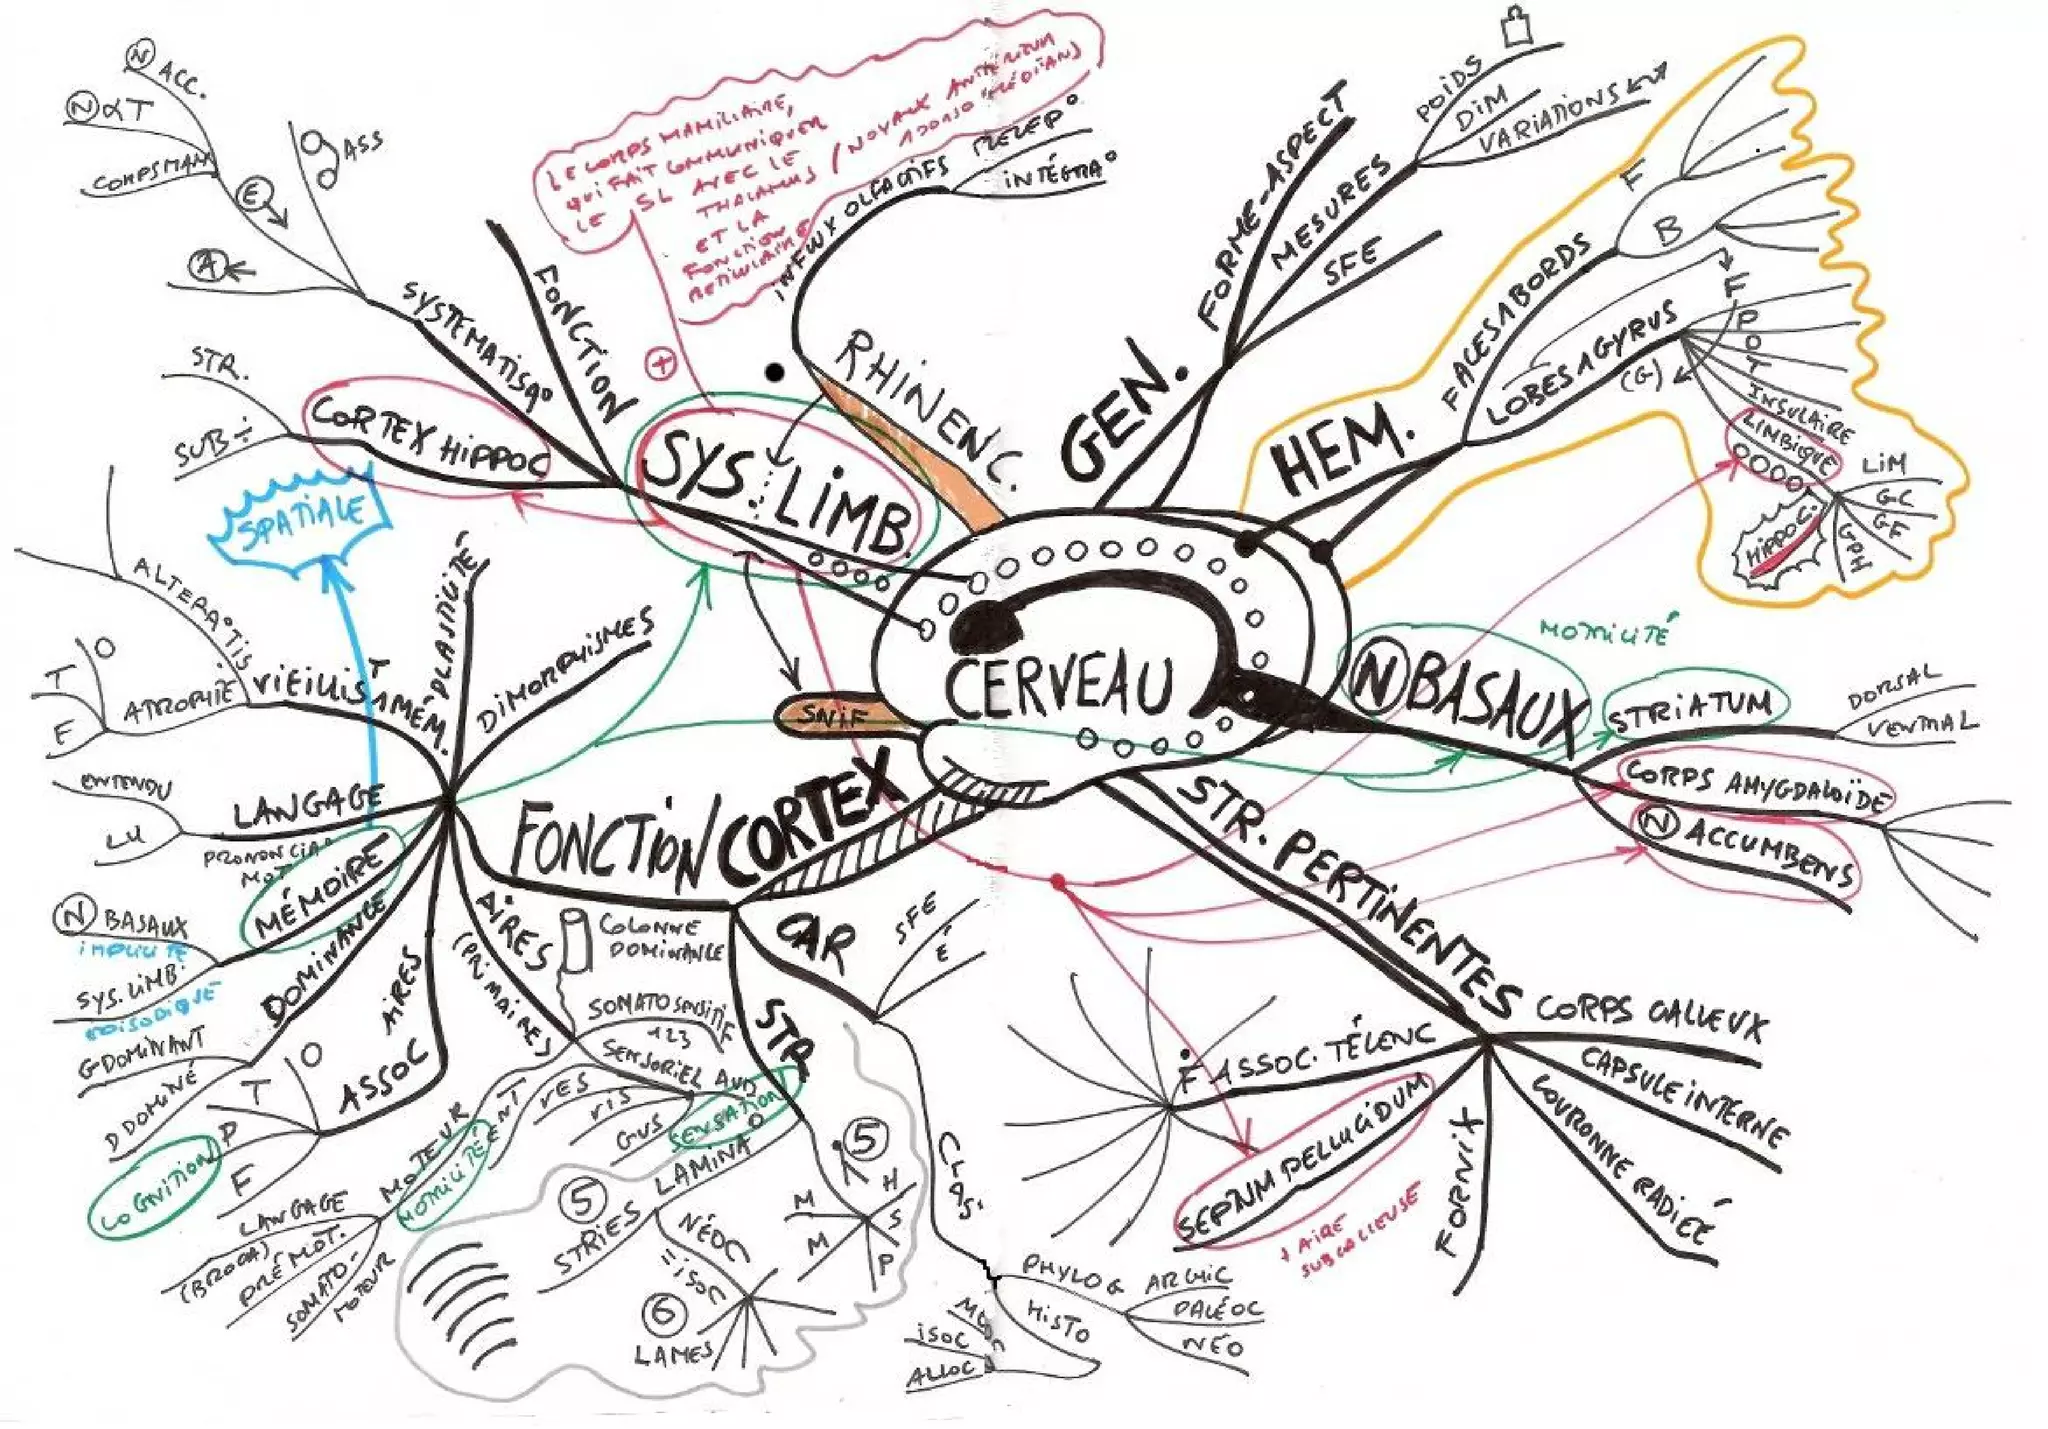 CERVEAU
GEN.
FORME-ASPECT
MESURES
POIDS
DIM
VARIATIONS
SFE
HEM.
FACES A BORDS
F
B
LOBES A GYRUS
(G)
F
P
O
T
INSULAIRE
LIMBIQUE
LIM
GC
GF
GPH
HIPPOC.
N BASAUX
MOTILITÉ
STRIATUM
DORSAL
VENTRAL
CORPS AMYGDALOÏDE
N ACCUMBENS
STR. PERTINENTES
CORPS CALLEUX
CAPSULE INTERNE
COURONNE RADIÉE
FORNIX
SEPTUM PELLUCIDUM
+ AIRE
SUBCALLEUSE
F ASSOC. TÉLENC
CORTEX
CAR
SFE
É
CLAS.
PHYLOG
ARCHIC
PALÉOC
NÉO
HISTO
ISOC
ALLOC
STR.
5
M
H
S
P
M
LAMINA°
STRIES
5
NÉOC
= ISOC
6
LAMES
FONCTION
AIRES
(PRIMAIRES)
COLONNE
DOMINANCE
SOMATOSENSITIF
123
SENSORIEL
AUD
VES
VIS
GUS
SENSATION
MOTEUR
MOTILITÉ
LANGAGE
(BROCA)
PRÉMOT.
SOMATO-
MOTEUR
AIRES
ASSOC
O
T
P
F
COGNITION
DOMINANCE
G DOMINANT
D DOMINÉ
MÉMOIRE
N BASAUX
IMPLICITE
SYS. LIMB.
EPISODIQUE
LANGAGE
ENTENDU
LU
VIEILLISST AMÉM.
ALTERA°TIS
ATROPHIE
O
T
F
PLASTICITÉ
DIMORPHISMES
SPATIALE
SNIF
SYS. LIMB.
CORTEX HIPPOC
STR.
SUB ÷
SYSTEMATISA°
FONCTION
A
E
N ACC.
N αT
CORPS MAM
G ASS
+
LE CORPS MAMILLAIRE,
QUI FAIT COMMUNIQUER
LE SL AVEC LE
THALAMUS (NOYAUX ANTÉRIEUR
A DORSO MÉDIAN)
ET LA
FONCTION
RETICULAIRE
RHINENC.
INFLUX OLFACTIFS
RECEP°
INTÉGRA°